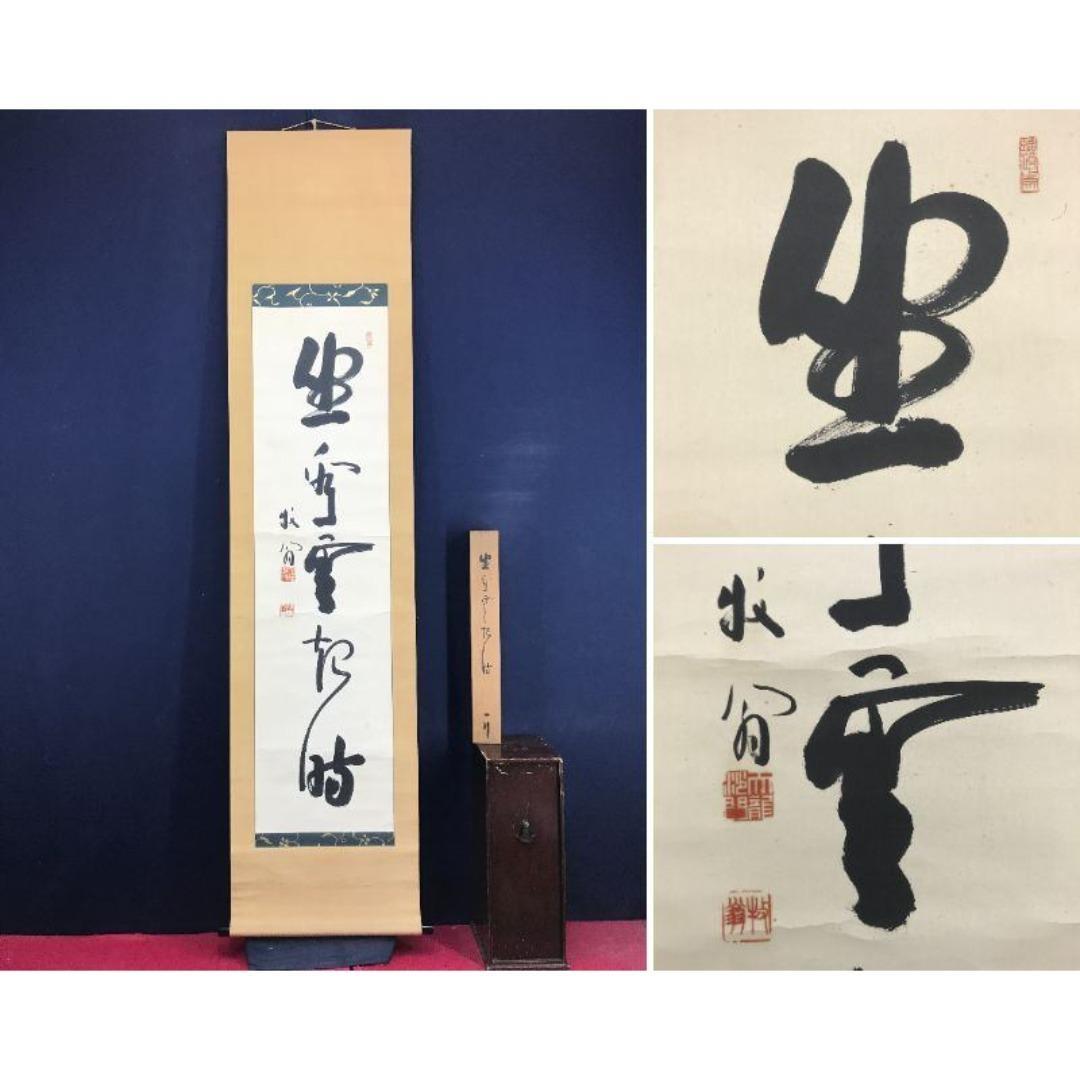 坐看雲起時
牧翁
坐看雲起時
坐
雲
牧翁
牧翁